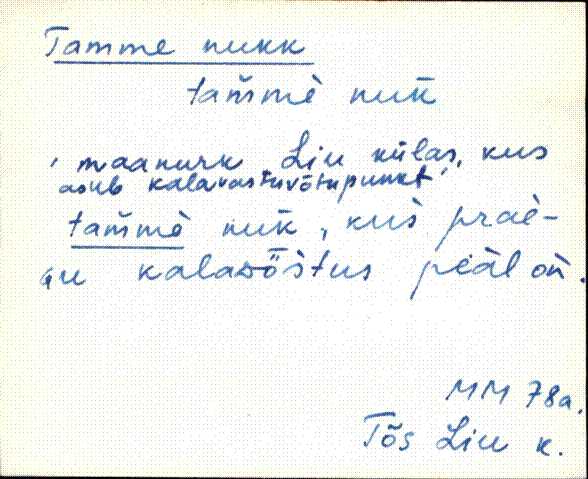 Tamme nukk
tam̆mè nuk̄
' maanurk Liu külas, kus
asub kalavastuvõtupunkt '
tam̆mè nuk̄, kus̀ praè-
gu kalavȫs̀tus peäl on̆.
MM 78a.
Tõs Liu k.